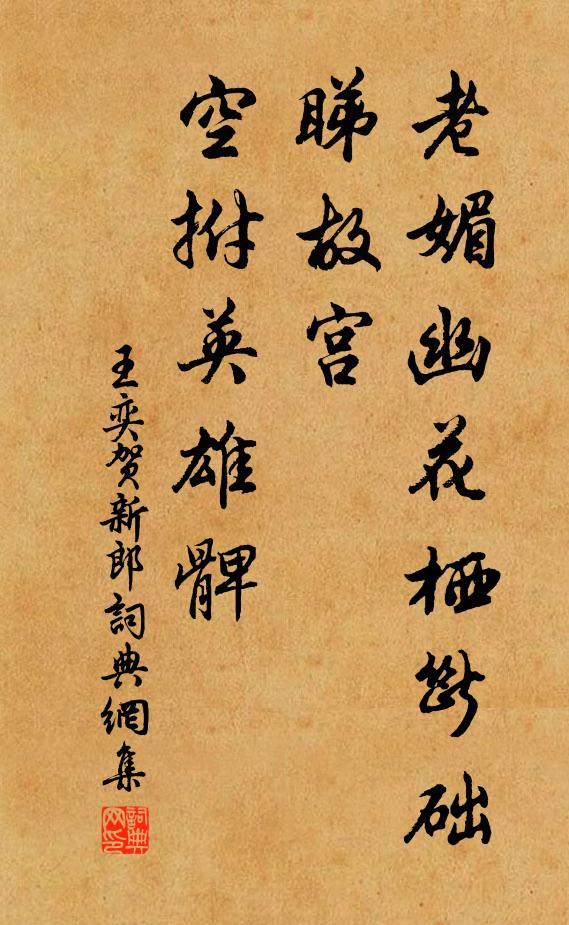 老媚幽花栖断础
睇故宫
空拊英雄髀
王奕贺新郎詞典網集
詞典网印